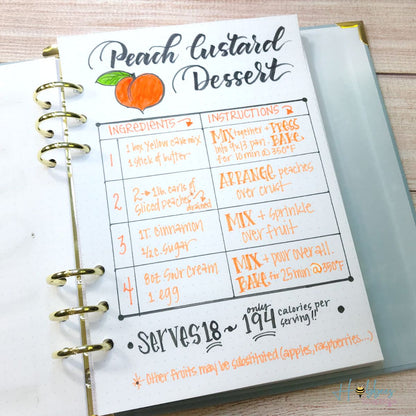 Peach Custard
Dessert
INGREDIENTS
INSTRUCTIONS
1
1 box yellow cake mix
1 stick of butter
MIX together + PRESS
into 9x13 pan. BAKE
for 10 min @ 350°F
2
sliced peaches
drained
ARRANGE peaches
over crust
3
1T. cinnamon
1/2c sugar
MIX + sprinkle
over fruit
4
8oz sour cream
1 egg
MIX + pour over all.
BAKE for 25 min @ 350°F
SERVES 18 ~ only 194 calories per
serving!!
* Other fruits may be substituted (apples, raspberries...)